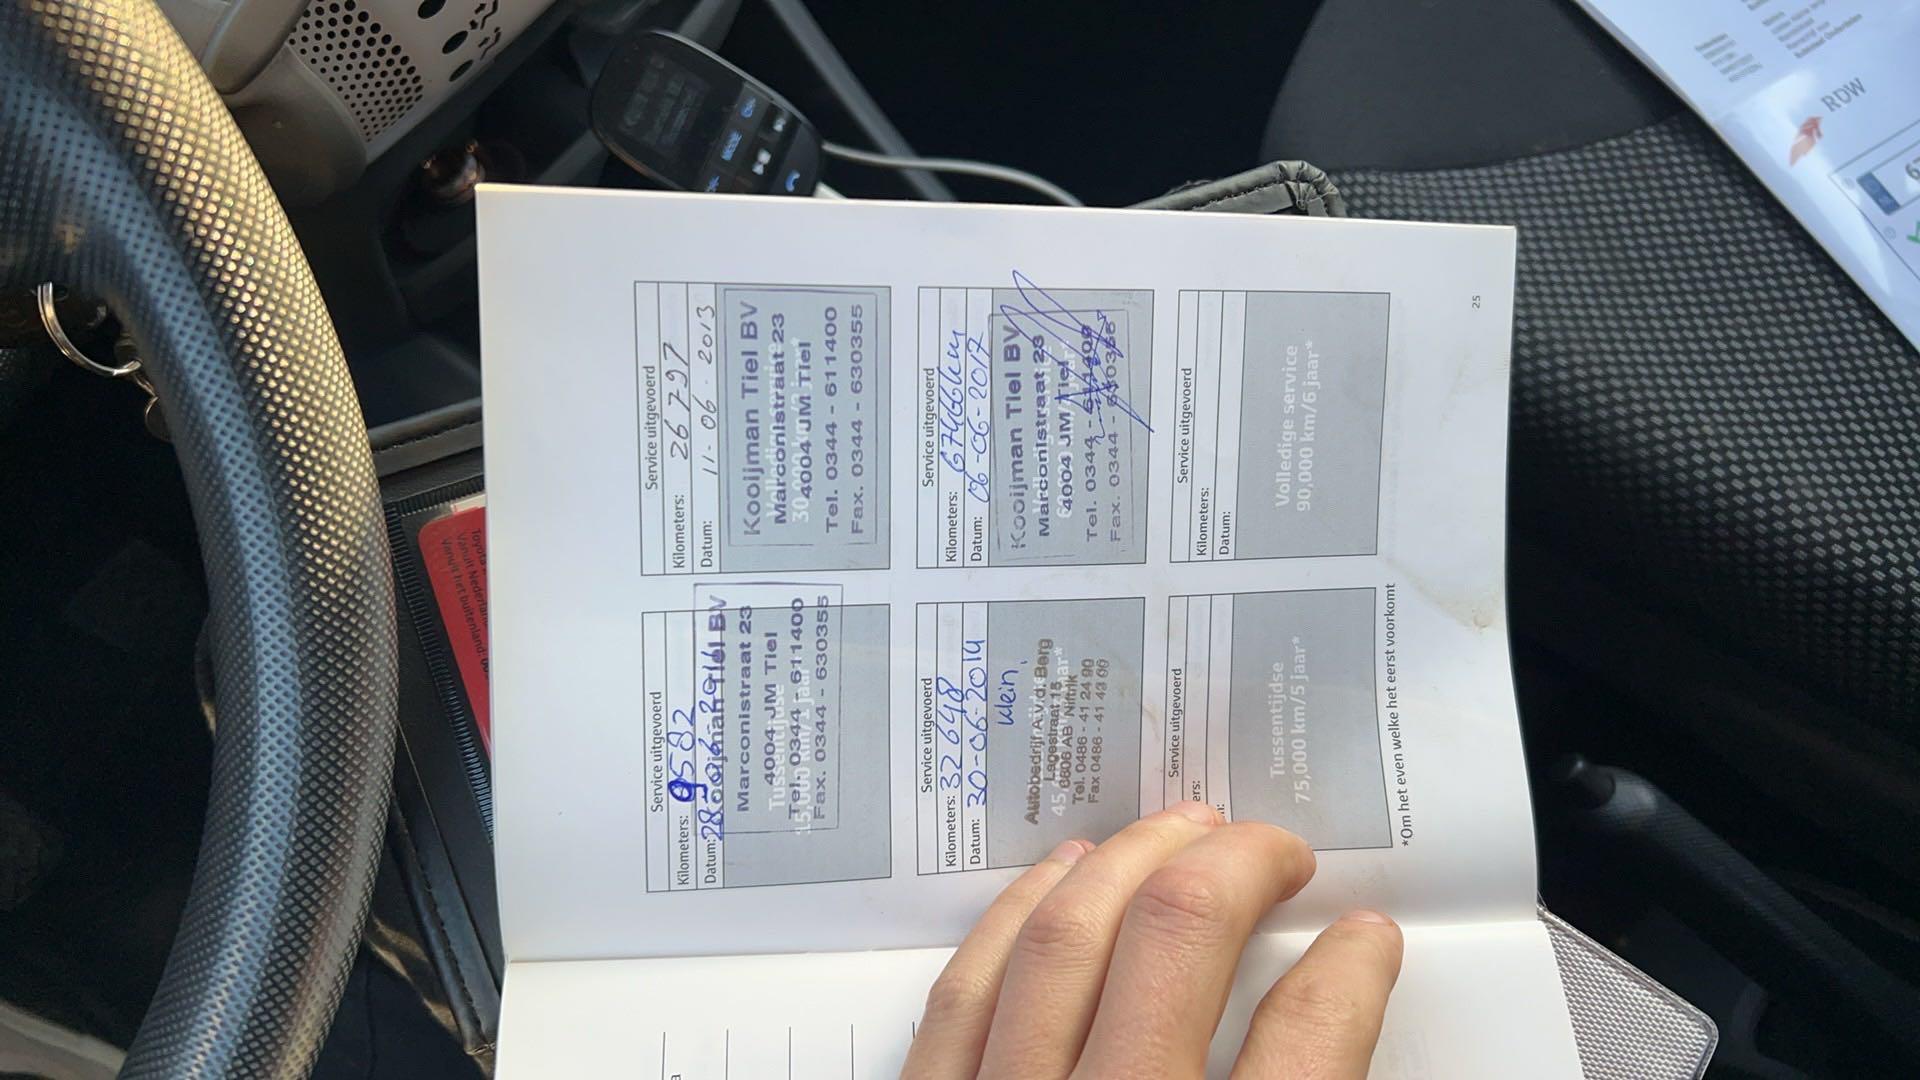 Service uitgevoerd
Kilometers: 9582
Datum: 28-
Kooijman Tiel BV
Marconistraat 23
4004 JM Tiel
Tussentijdse
Tel. 0344 - 611400
15,000 km/1 jaar*
Fax. 0344 - 630355
Service uitgevoerd
Kilometers: 26797
Datum: 11-06-2013
Kooijman Tiel BV
Marconistraat 23
30,000 km/2 jaar*
4004 JM Tiel
Tel. 0344 - 611400
Fax. 0344 - 630355
Service uitgevoerd
Kilometers: 32648
Datum: 30-06-2014
klein,
Autobedrijf A.v.d. Berg
Lagestraat 15
6606 AB Niftrik
Tel. 0486 - 41 24 90
Fax 0486 - 41 43 60
Service uitgevoerd
Kilometers: 67466km
Datum: 06-06-2017
Kooijman Tiel BV
Marconistraat 23
4004 JM Tiel
Tel. 0344 - 611400
Fax. 0344 - 630355
Service uitgevoerd
ers:
Tussentijdse
75,000 km/5 jaar*
Service uitgevoerd
Kilometers:
Datum:
Volledige service
90,000 km/6 jaar*
*Om het even welke het eerst voorkomt
25
RDW
MODE